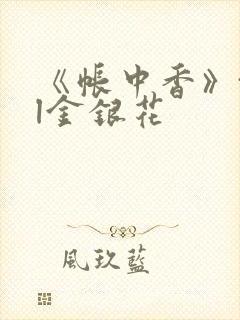 《帐中香》
|金银花
風玖藍